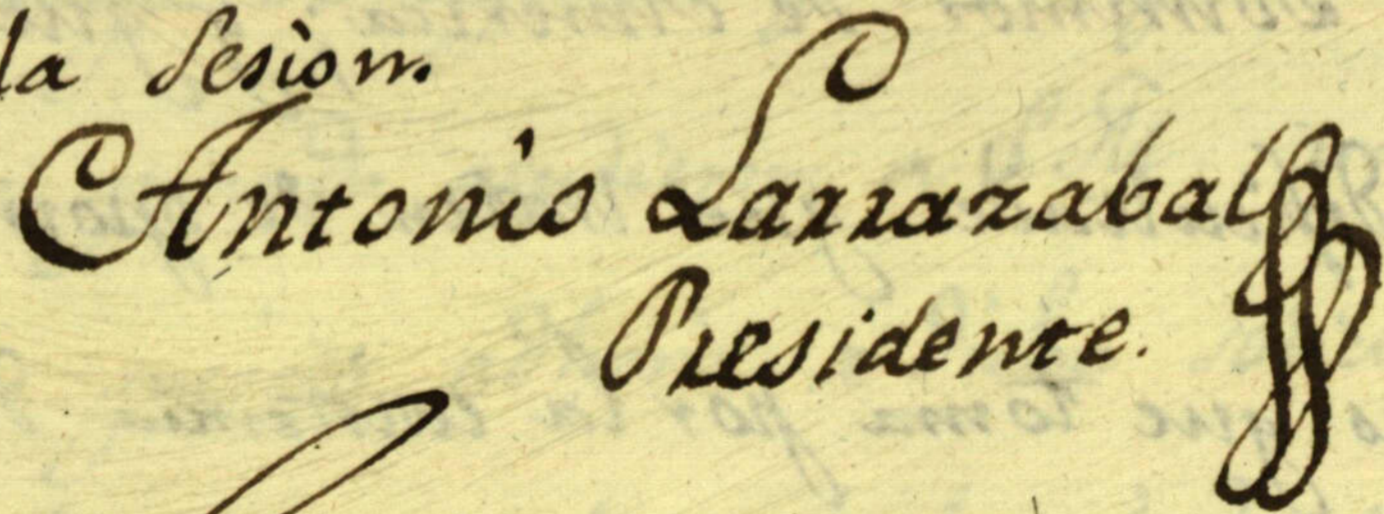 la Sesion.
Antonio Larrazabal
Presidente.